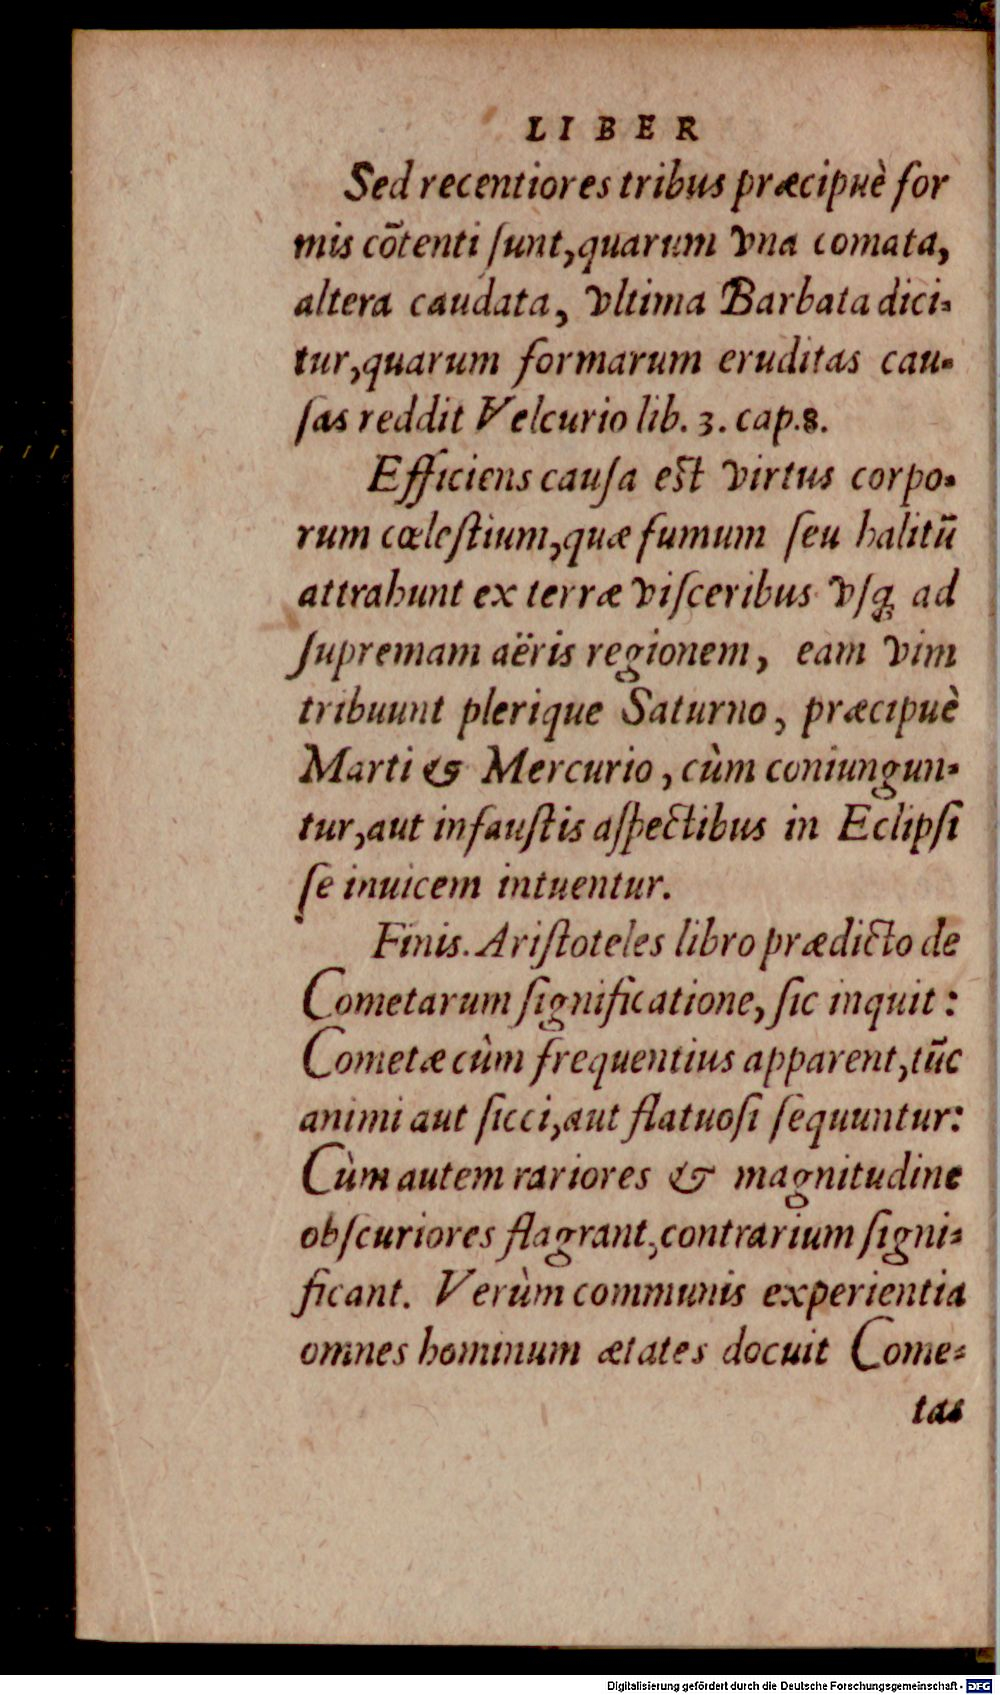 LIBER
Sed recentiores tribus præcipuè for
mis cõtenti ſunt, quarum vna comata,
altera caudata, vltima Barbata dici-
tur, quarum formarum eruditas cau-
ſas reddit Velcurio lib. 3. cap. 8.
Efficiens cauſa eſt virtus corpo-
rum cœleſtium, quæ fumum ſeu halitũ
attrahunt ex terræ viſceribus vſq; ad
ſupremam aëris regionem, eam vim
tribuunt plerique Saturno, præcipuè
Marti & Mercurio, cùm coniungun-
tur, aut infauſtis aſpectibus in Eclipſi
ſe inuicem intuentur.
Finis. Ariſtoteles libro prædicto de
Cometarum ſignificatione, ſic inquit:
Cometæ cùm frequentius apparent, tũc
animi aut ſicci, aut flatuoſi ſequuntur:
Cùm autem rariores & magnitudine
obſcuriores flagrant, contrarium ſigni-
ficant. Verùm communis experientia
omnes hominum ætates docuit Come-
tas
Digitalisierung gefördert durch die Deutsche Forschungsgemeinschaft - DFG